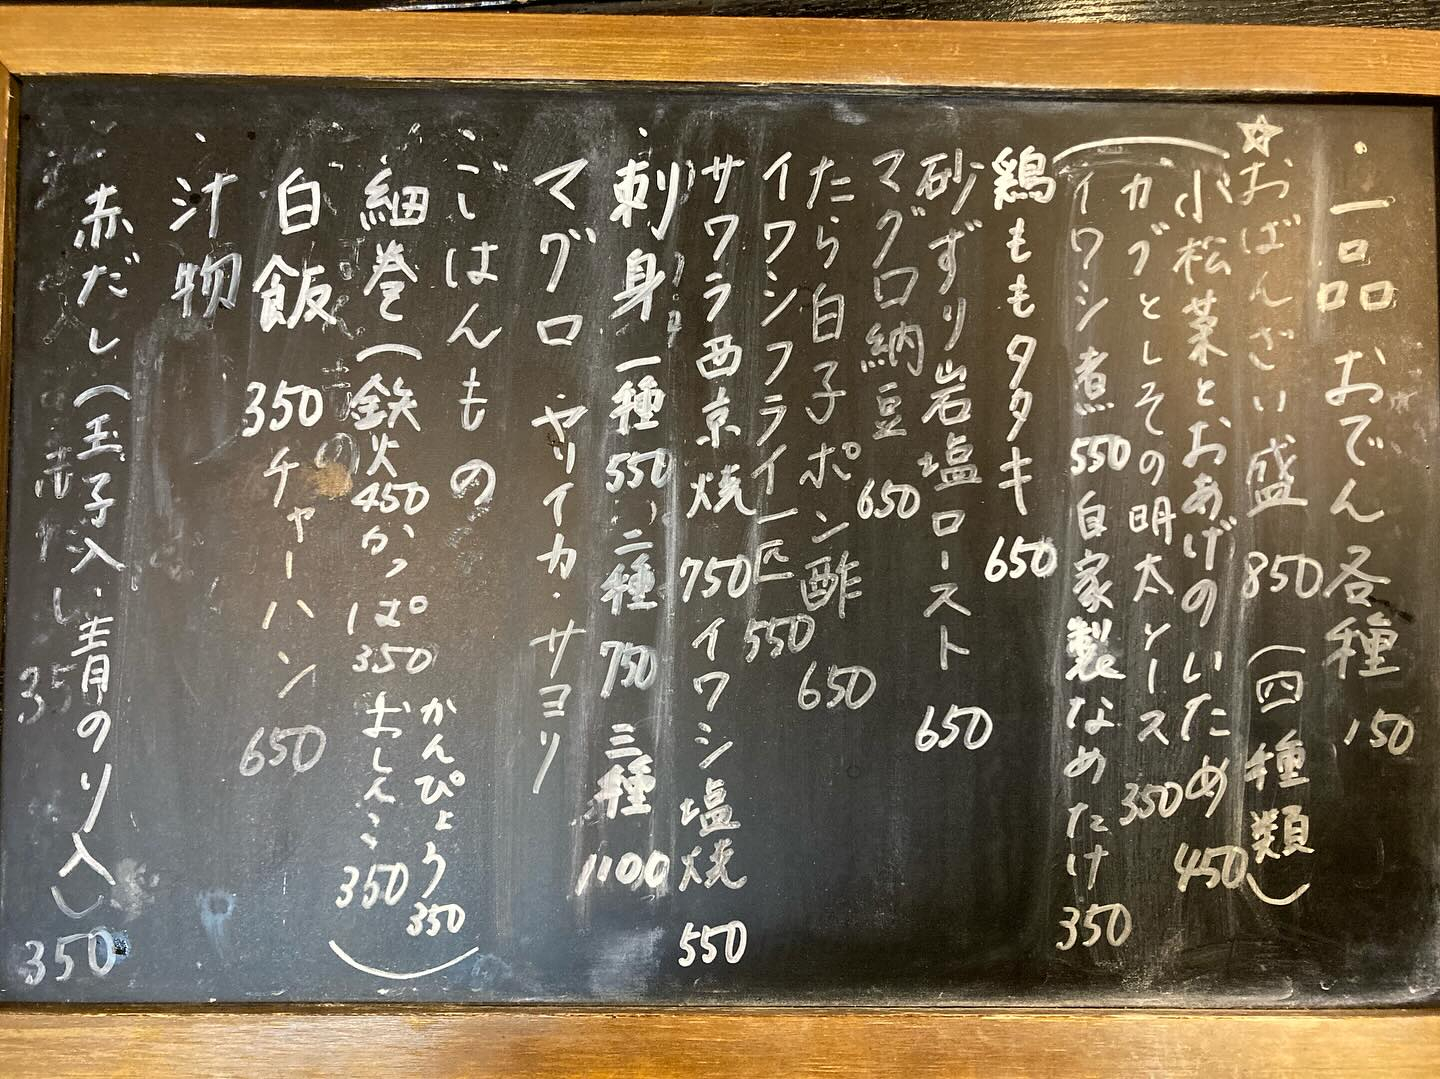 ・一品 おでん各種 150
☆おばんざい盛 850 (四種類)
小松菜とおあげのいため 450
カブとしその明太ソース 350
イワシ煮 550 自家製なめたけ 350
鶏ももタタキ 650
砂ずり岩塩ロースト 650
マグロ納豆 650
たら白子ポン酢 650
イワシフライ一匹 550
サワラ西京焼 750 イワシ塩焼 550
・刺身 一種 550、二種 750 三種 1100
マグロ・ヤリイカ・サヨリ
・ごはんもの
細巻(鉄火 450 かっぱ 350 おしんこ 350
かんぴょう 350)
白飯 350 チャーハン 650
・汁物
赤だし(玉子入・青のり入) 350